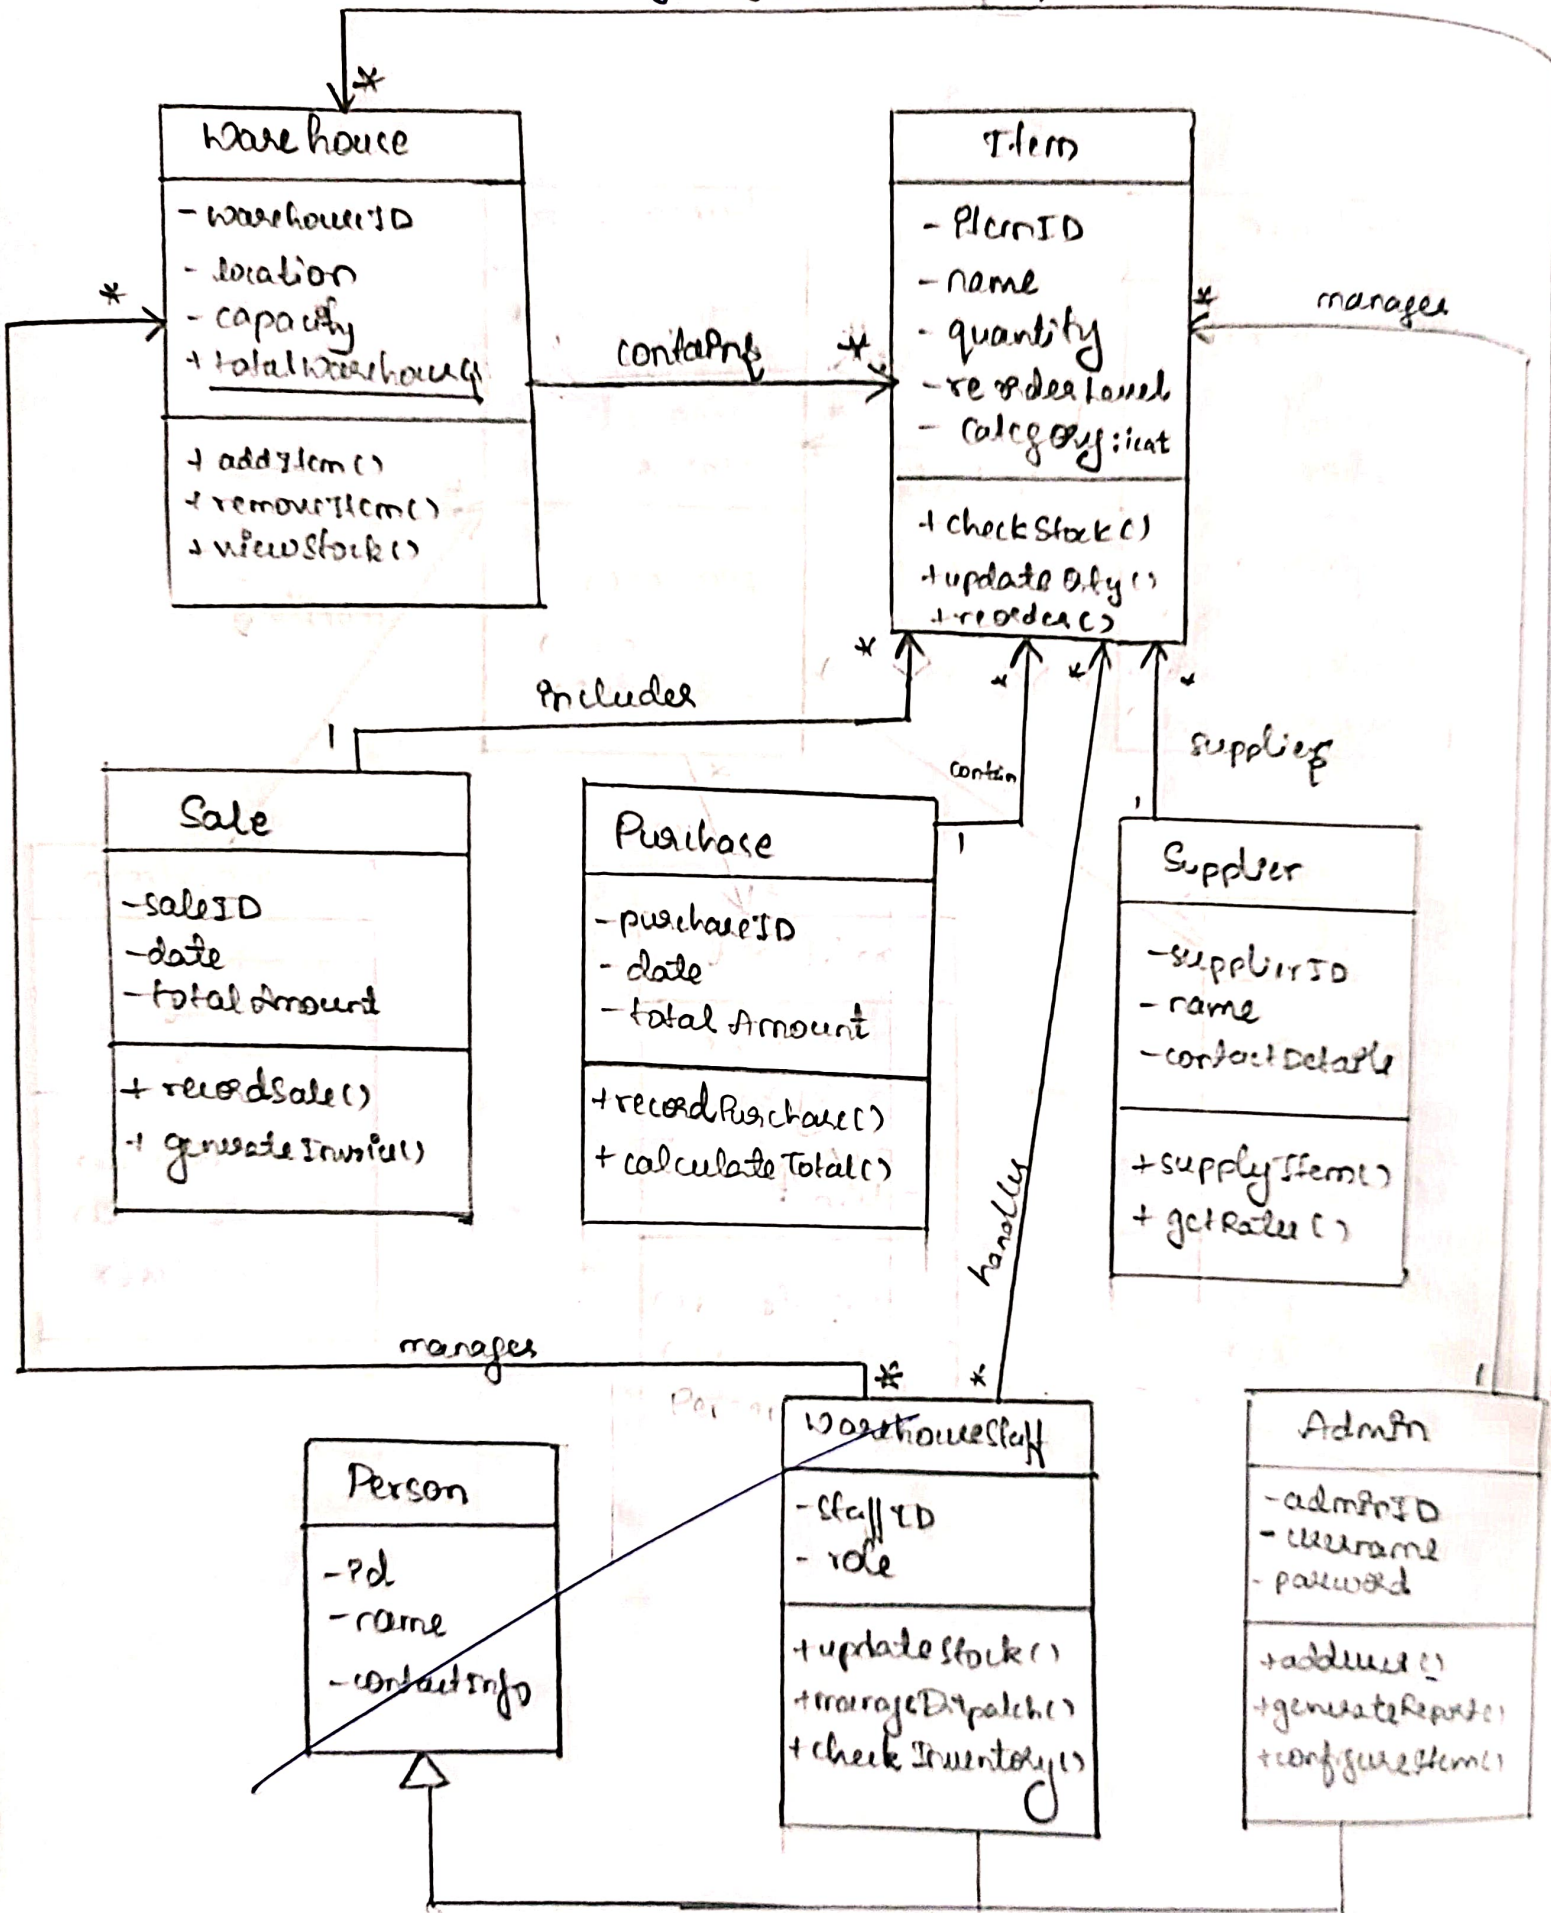 *
Warehouse
- warehouseID
- location
- capacity
+ totalWarehouses
+ addItem()
+ removeItem()
+ viewStock()
*
contains
*
Item
- itemID
- name
- quantity
- reorderLevel
+ checkStock()
+ updateQty()
+ reorder()
*
manages
*
includes
1
*
contain
1
*
*
supplies
1
Sale
- saleID
- date
- totalAmount
+ recordSale()
+ generateInvoice()
Purchase
- purchaseID
- date
- totalAmount
+ recordPurchase()
+ calculateTotal()
Supplier
- supplierID
- name
- contactDetails
+ supplyItem()
+ getRates()
handles
manages
*
*
1
Person
- id
- name
- contactInfo
WarehouseStaff
- staffID
- role
+ updateStock()
+ manageDispatch()
+ checkInventory()
Admin
- adminID
- username
- password
+ adduser()
+ generateReport()
+ configureItem()